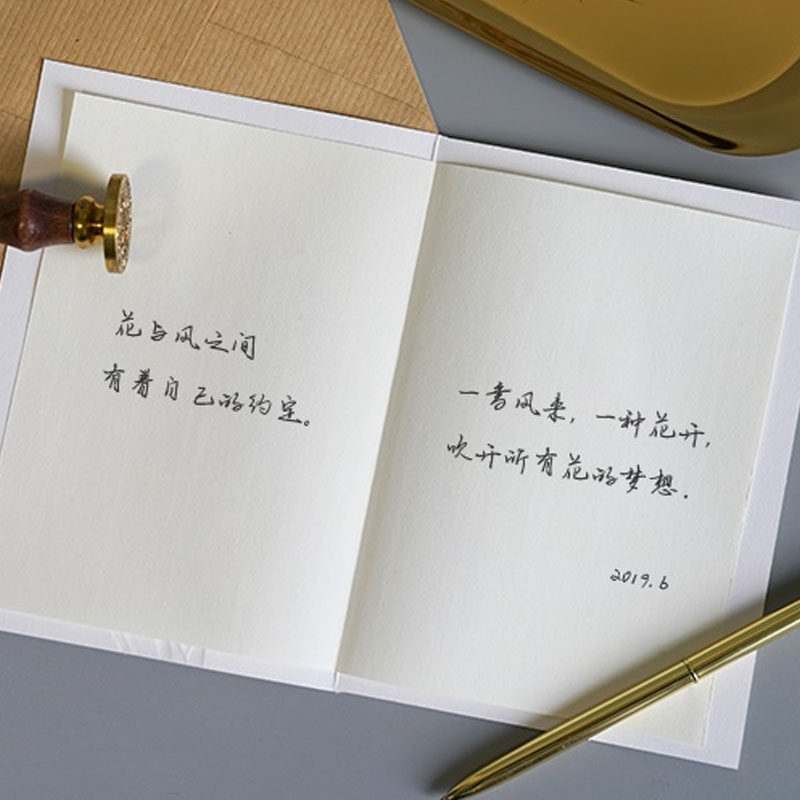 花与风之间
有着自己的约定。
一番风来，一种花开，
吹开所有花的梦想.
2019.6